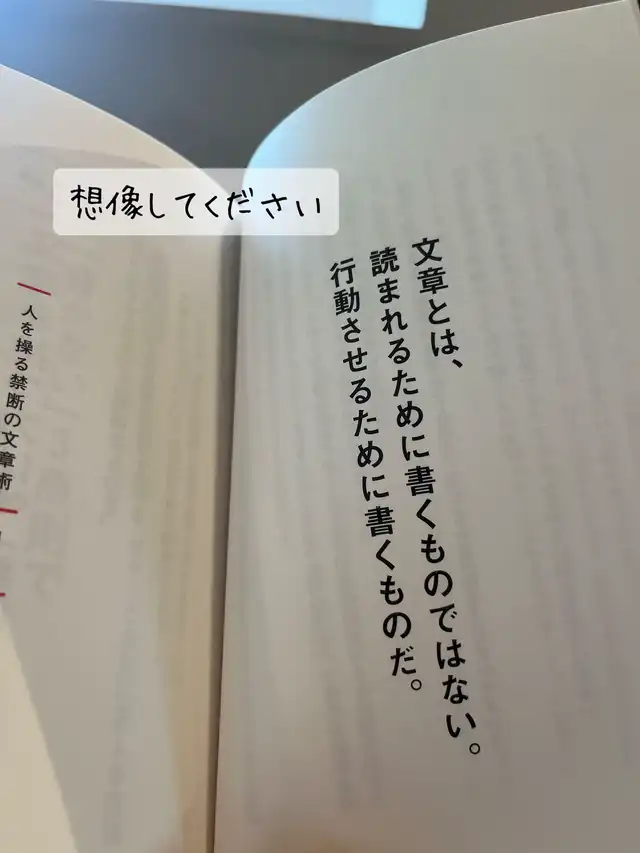 想像してください
文章とは、
読まれるために書くものではない。
行動させるために書くものだ。
人を操る禁断の文章術